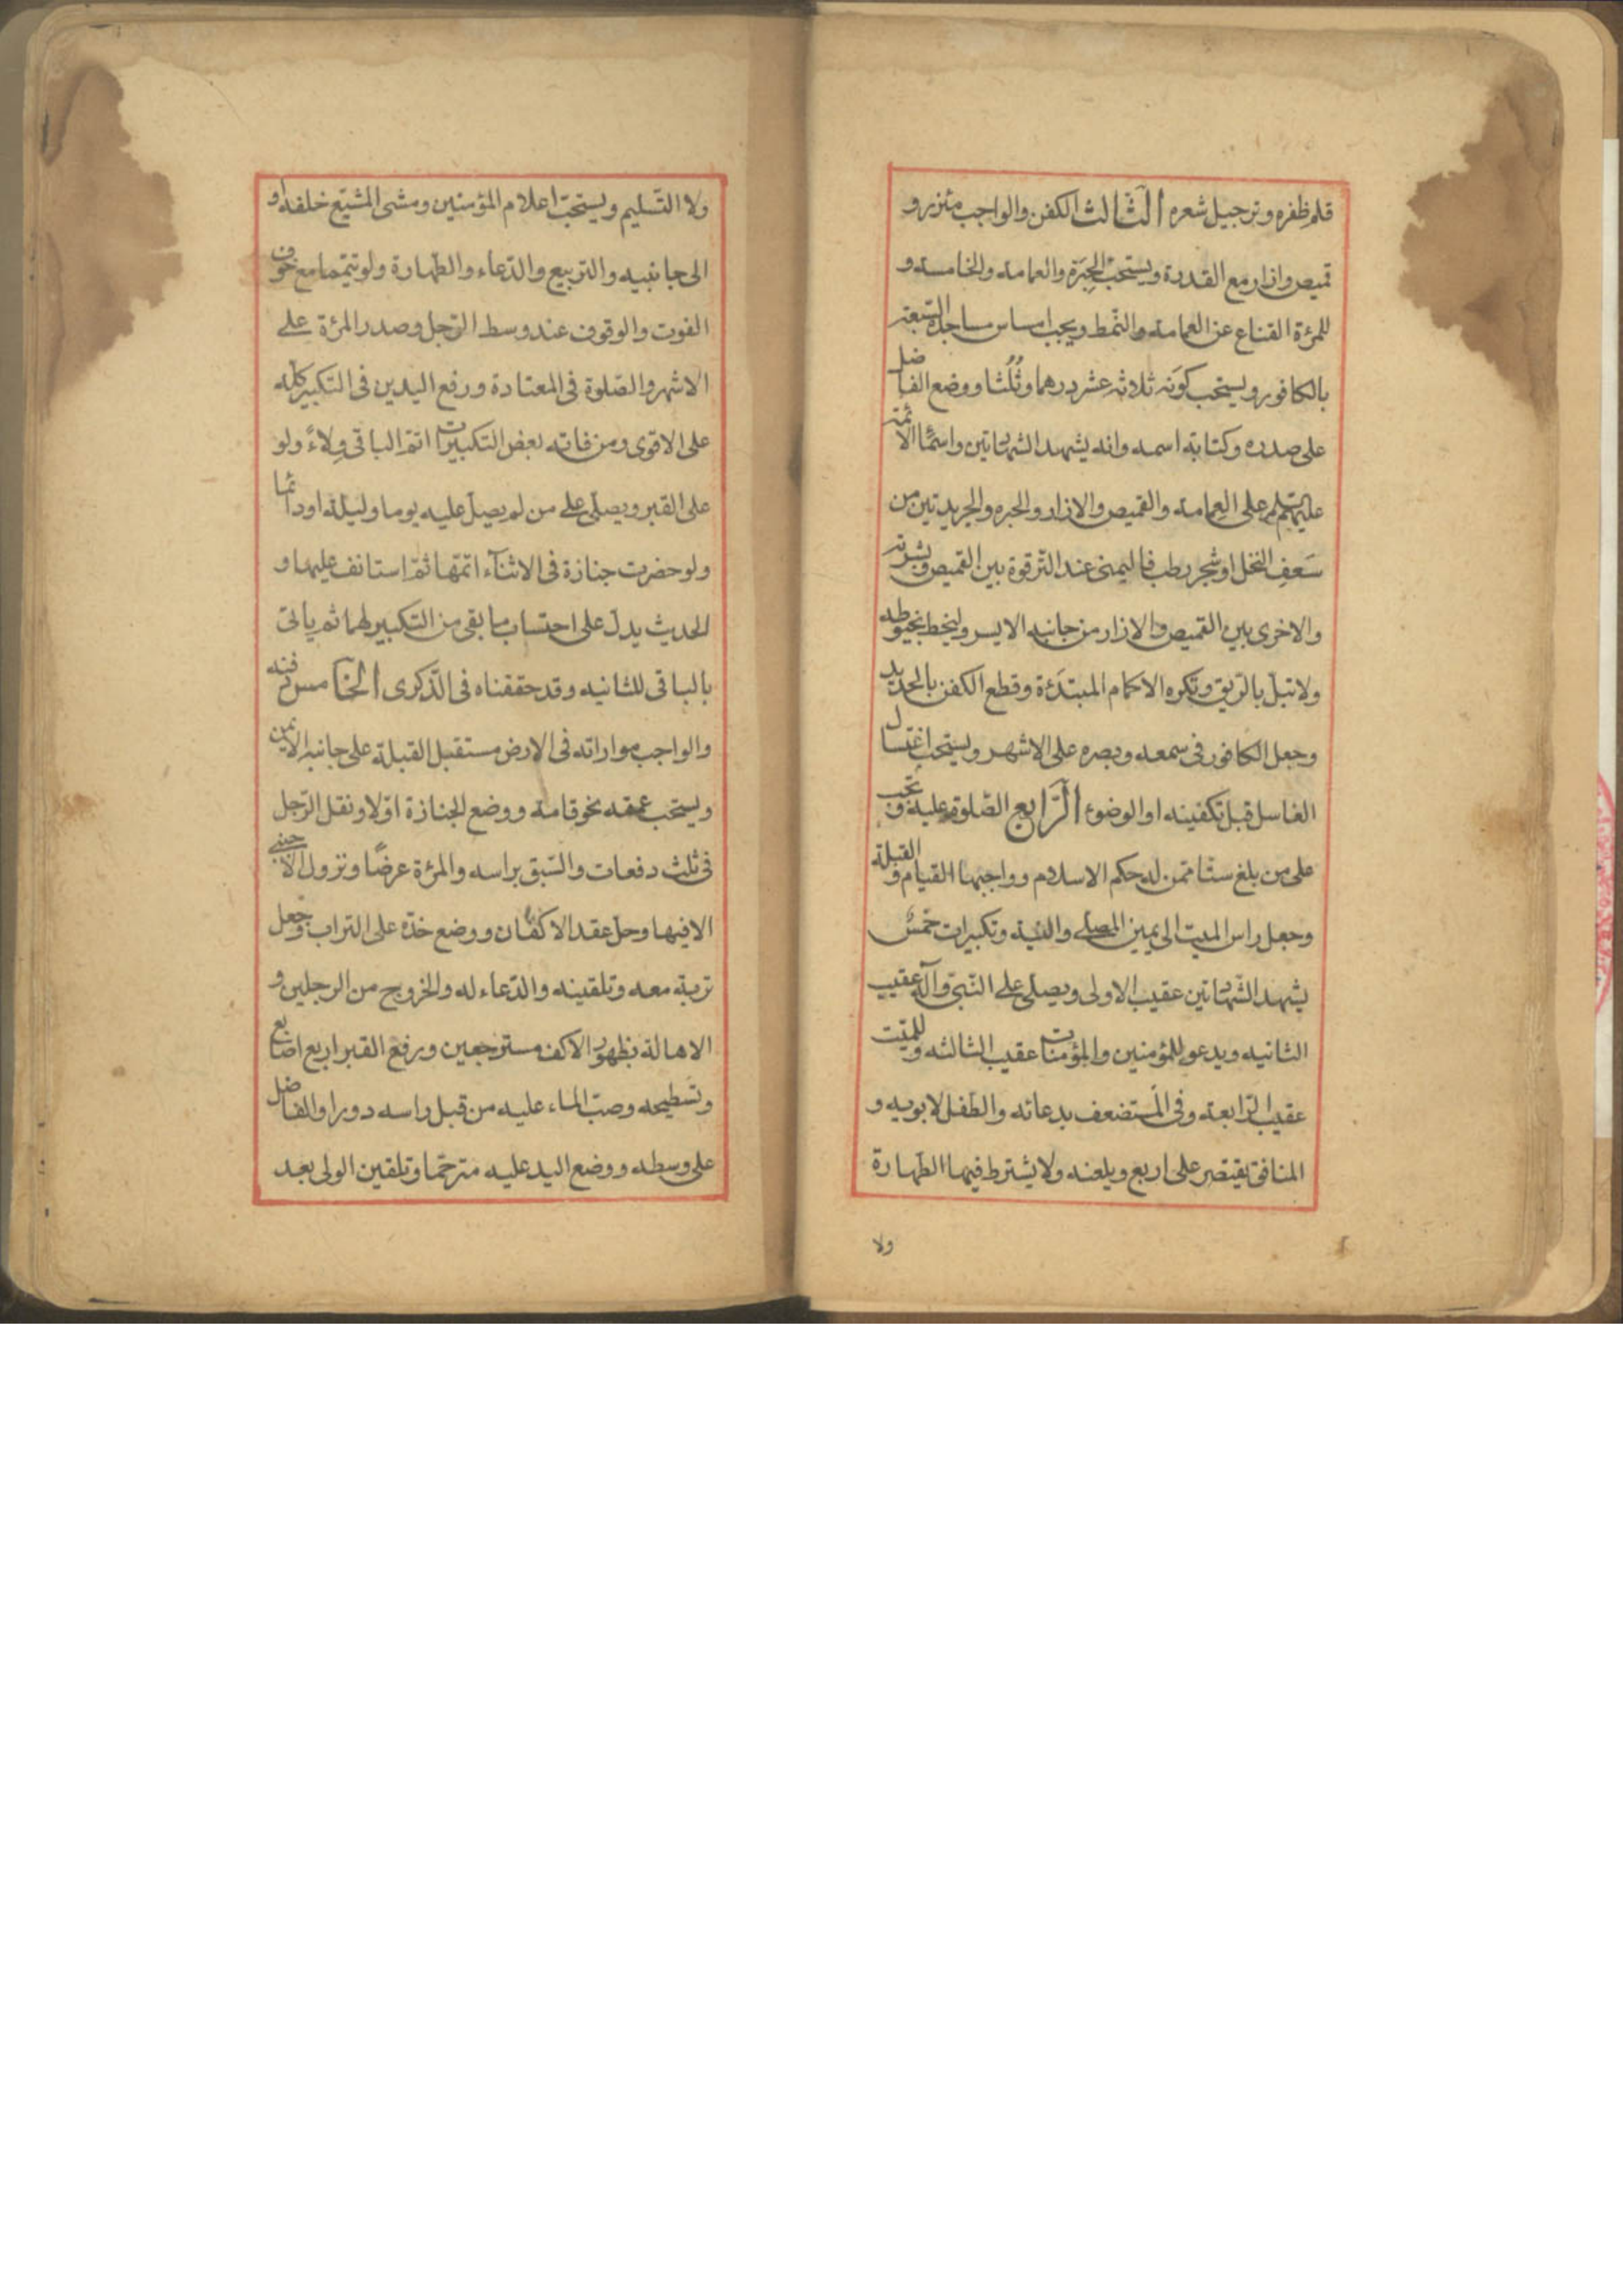 قلم ظفره وترجيل شعره الثالث الكفن والواجب مئزر و
قميص وازار مع القدرة ويستحب الحبرة والعمامة والخامسة و
للمرئة القناع عن العمامة والنمط ويجب امساس مساجده السبعة
بالكافور ويستحب كونه ثلاثة عشر درهما وثلثا ووضع الفاضل
على صدره وكتابة اسمه وانه يشهد الشهادتين واسماء الائمة
عليهم على العمامة والقميص والازار والحبره والجريدتين من
سعف النخل او شجر رطب فاليمنى عند الترقوة بين القميص وبشرته
والاخرى بين القميص والازار من جانبه الايسر وليخط بخيوطه
ولا تبل بالريق وتكره الاكمام المبتدئة وقطع الكفن بالحديد
وجعل الكافور فى سمعه وبصره على الاشهر ويستحب اغتسال
الغاسل قبل تكفينه او الوضوء الرابع الصلوة عليه وتجب
على من بلغ ستا ممن له حكم الاسلام وواجبها القيام والقبلة
وجعل راس الميت الى يمين المصلى والنية وتكبيرات خمس
يشهد الشهادتين عقيب الاولى ويصلى على النبى وآله عقيب
الثانيه ويدعو للمؤمنين والمؤمنات عقيب الثالثه وللميت
عقيب الرابعة وفى المستضعف بدعائه والطفل لابويه و
المنافق يقتصر على اربع ويلعنه ولا يشترط فيها الطهارة
ولا
ولا التسليم ويستحب اعلام المؤمنين ومشى المشيع خلفه او
الى جانبيه والتربيع والدعاء والطهارة ولو تيمما مع خوف
الفوت والوقوف عند وسط الرجل وصدر المرئة على
الاشهر والصلوة فى المعتادة ورفع اليدين فى التكبير كله
على الاقوى ومن فاته بعض التكبيرات اتم الباقى ولاءً ولو
على القبر ويصلى على من لم يصل عليه يوما وليلة او دائما
ولو حضرت جنازة فى الاثناء اتمها ثم استانف عليها و
الحديث يدل على احتساب ما بقى من التكبير لهما ثم ياتى
بالباقى للثانيه وقد حققناه فى الذكرى الخامس دفنه
والواجب مواراته فى الارض مستقبل القبلة على جانبه الايمن
ويستحب عمقه نحو قامة ووضع الجنازة اولا ونقل الرجل
فى ثلث دفعات والسبق براسه والمرئة عرضًا ونزول الاجنبى
الا فيها وحل عقد الاكفان ووضع خده على التراب وجعل
تربة معه وتلقينه والدعاء له والخروج من الرجلين و
الاهالة بظهور الاكف مسترجعين ورفع القبر اربع اصابع
وتسطيحه وصب الماء عليه من قبل راسه دورا والفاضل
على وسطه ووضع اليد عليه مترحما وتلقين الولى بعد